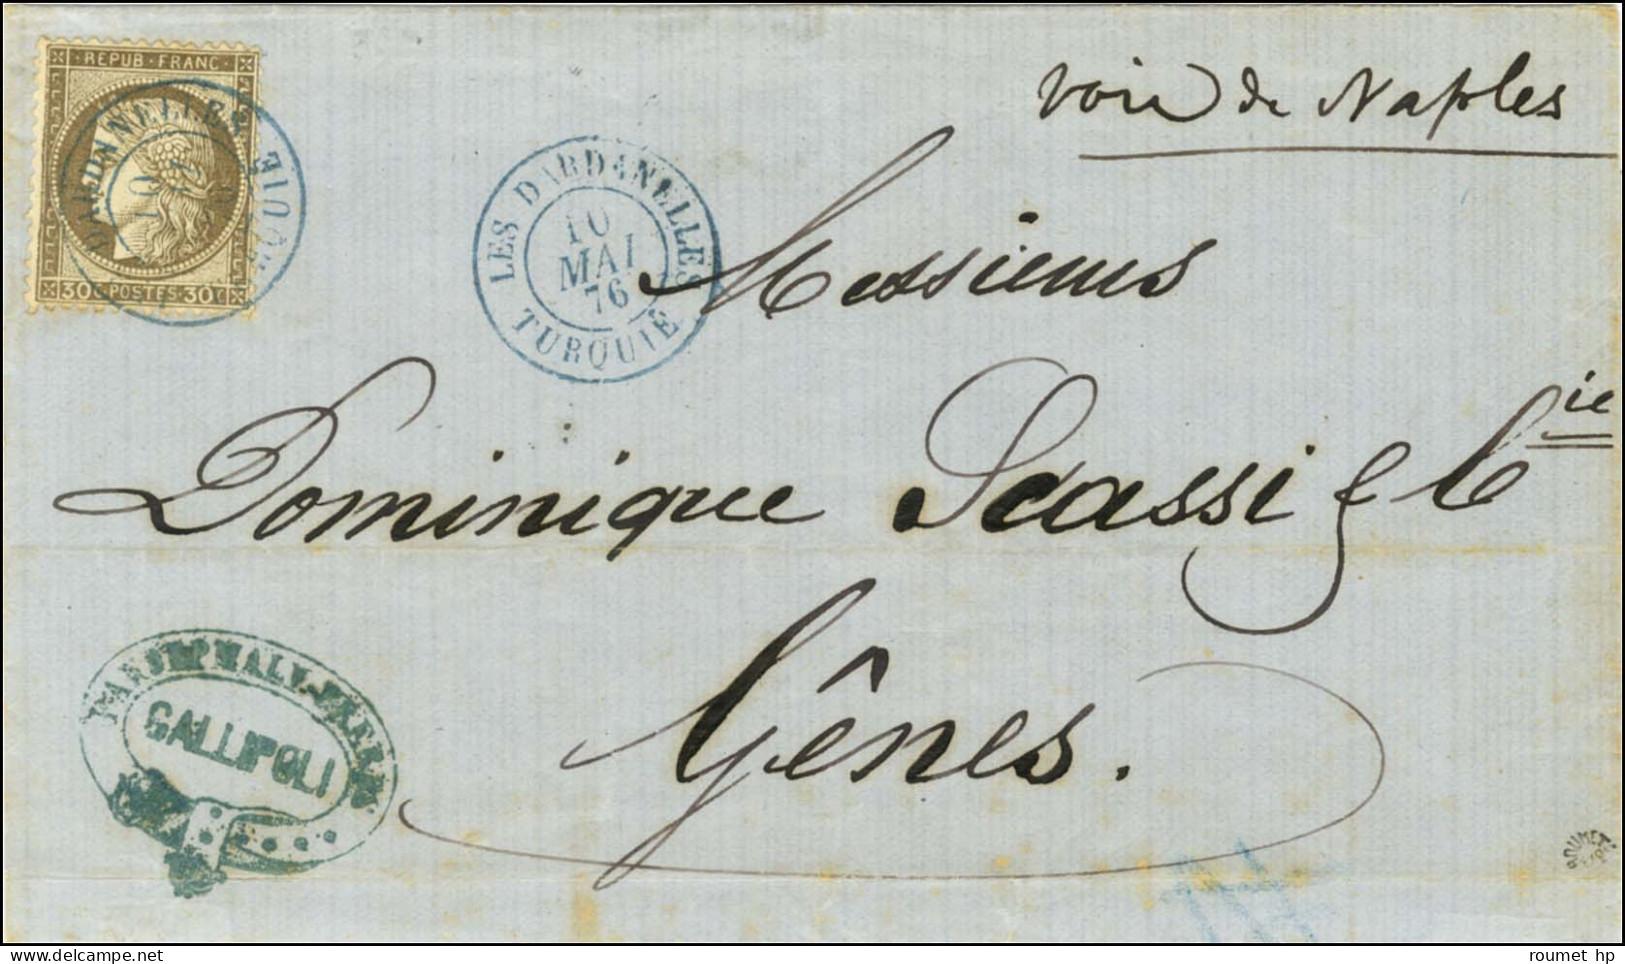 REPUB · FRANC ·
30 C · POSTES · 30 C
DARDANELLES
voie de Naples
LES DARDANELLES
10
MAI
76
TURQUIE
Messieurs
Dominique Scassi & Cie
Gênes.
GALLIPOLI
ROUMET
roumet hp